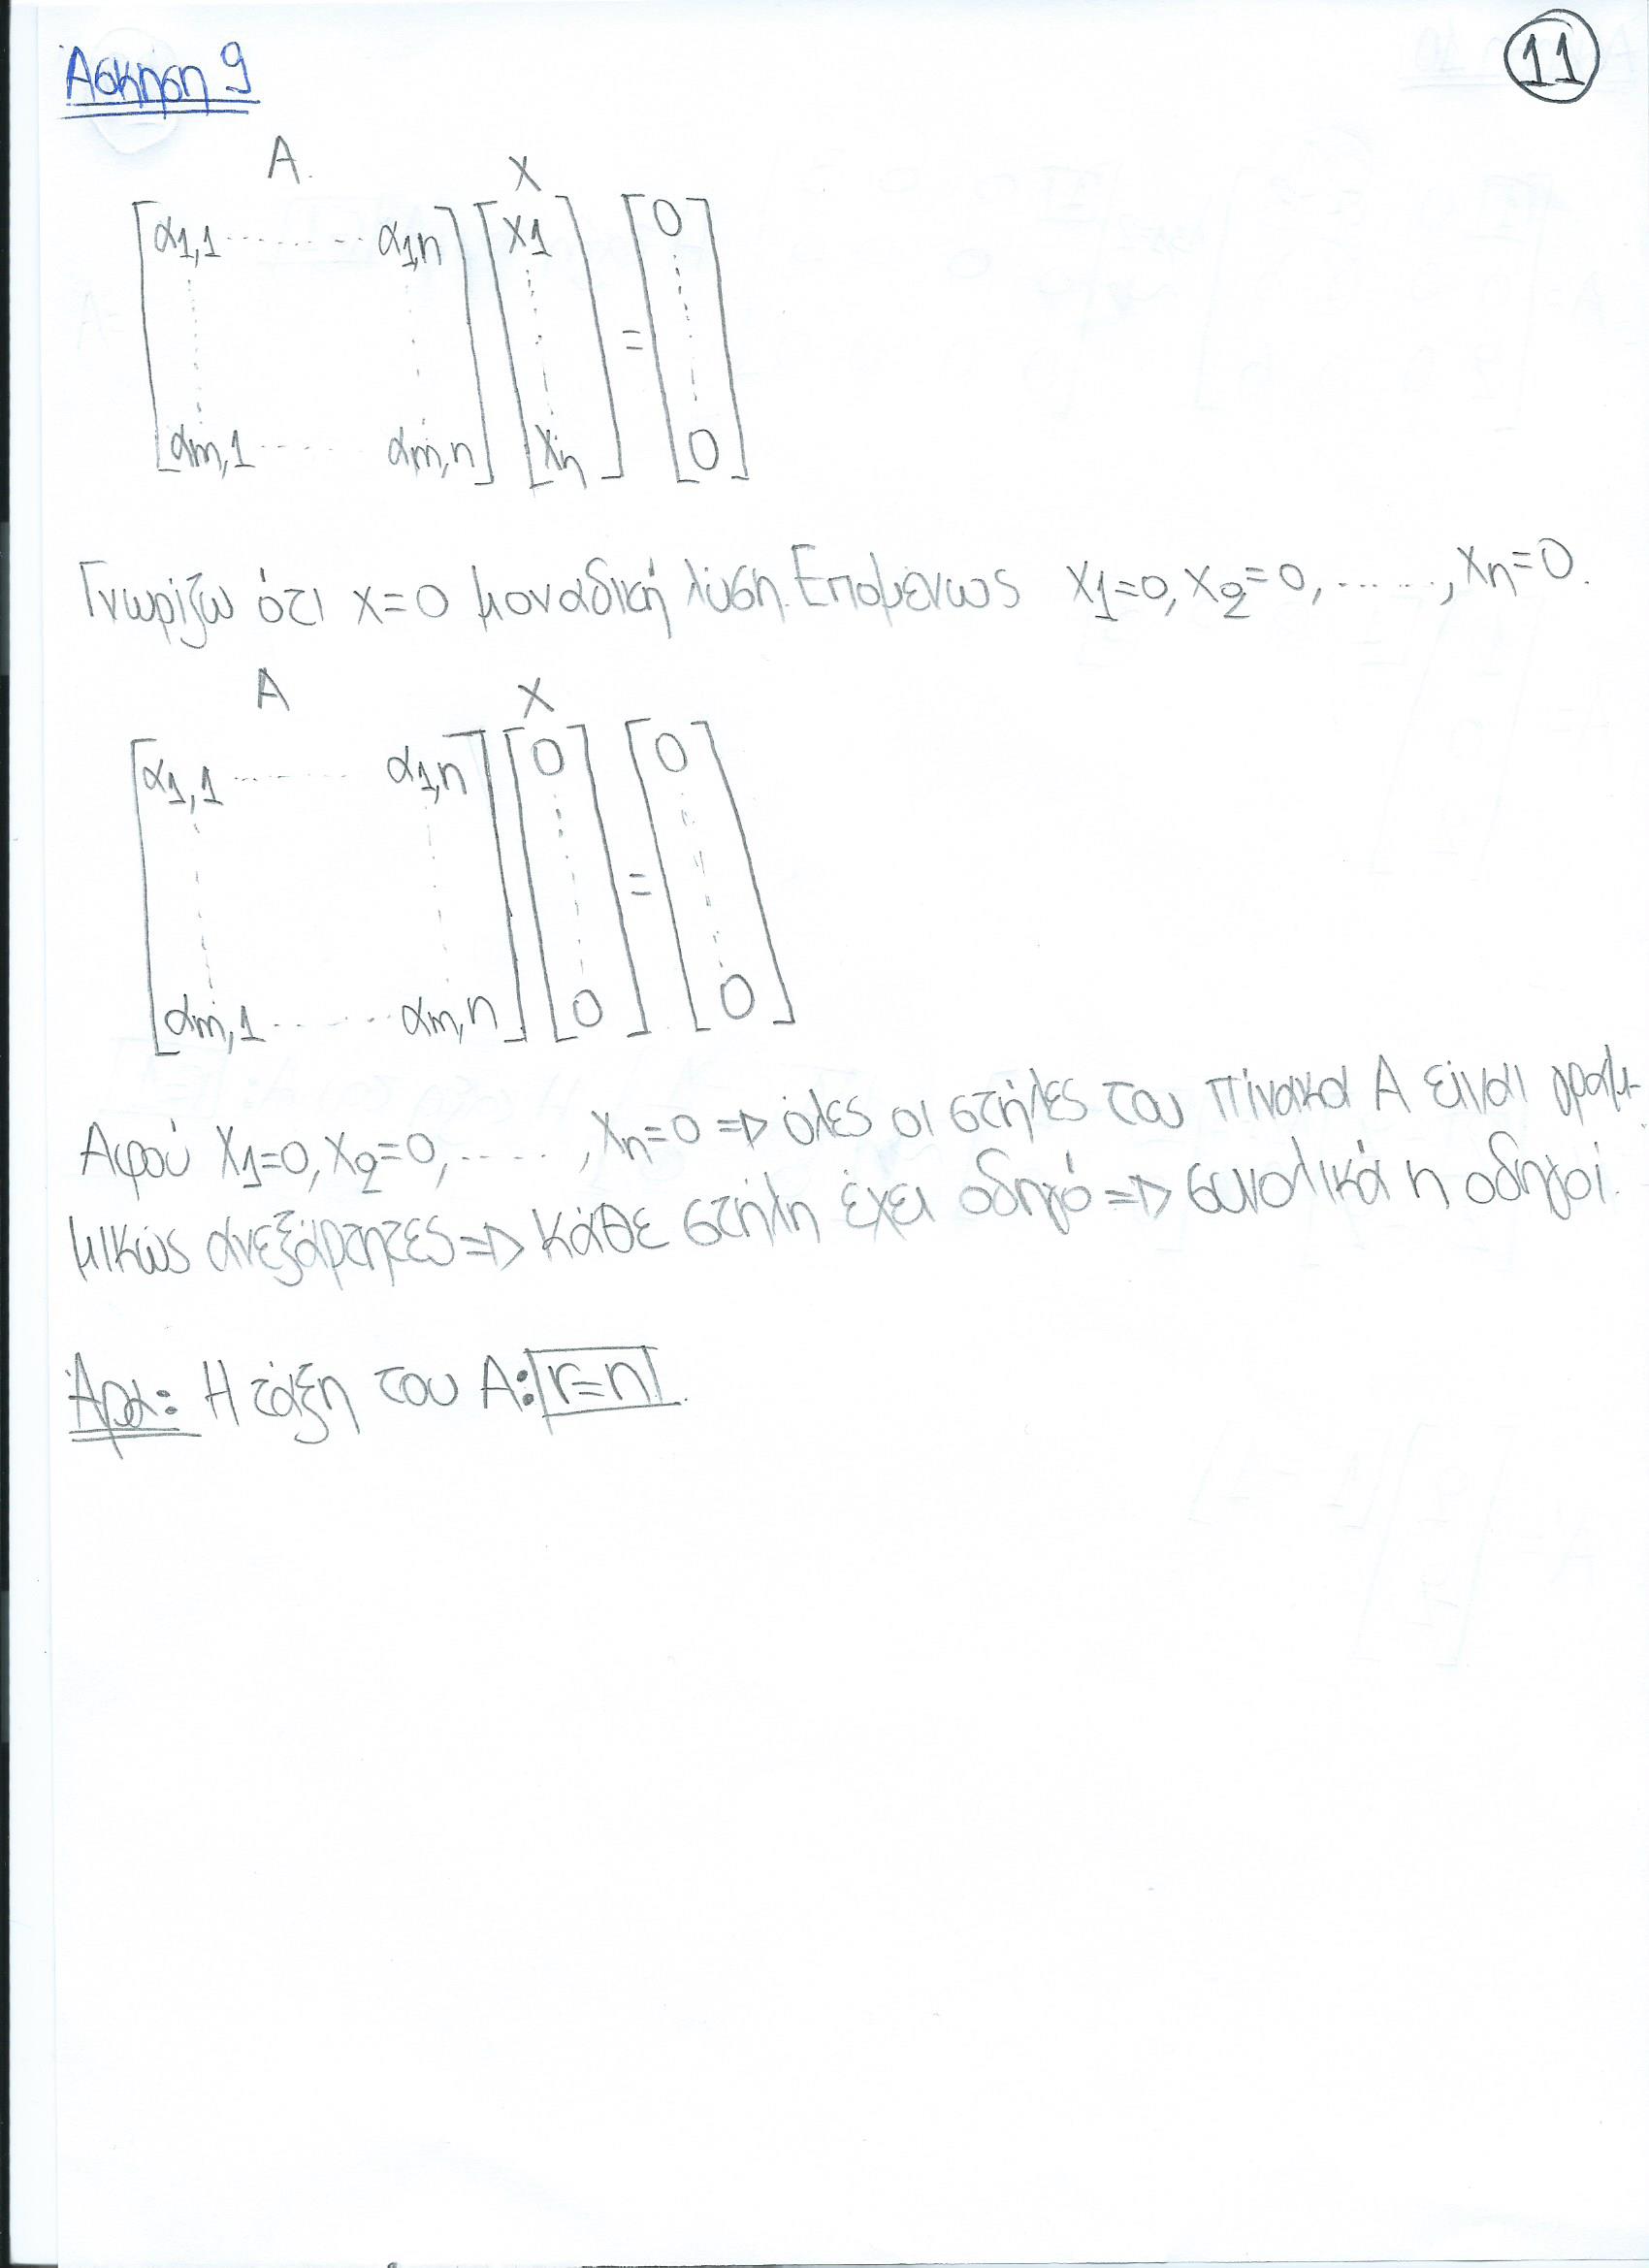 Άσκηση 9
11
A x
[α1,1 ........ α1,n] [x1] = [0]
[αm,1 ..... αm,n] [xn] [0]
Γνωρίζω ότι x=0 μοναδική λύση. Επομένως x1=0, x2=0, ......, xn=0.
A x
[α1,1 ........ α1,n] [0] = [0]
[αm,1 ........ αm,n] [0] [0]
Αφού x1=0, x2=0, ......, xn=0 => όλες οι στήλες του πίνακα A είναι γραμ-
μικώς ανεξάρτητες => κάθε στήλη έχει οδηγό => συνολικά n οδηγοί.
Άρα: Η τάξη του A: r=n.